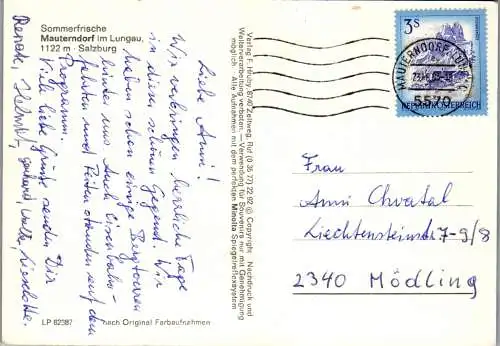 Sommerfrische
Mauterndorf im Lungau,
1122 m · Salzburg
Liebe Anni!
Wir verbringen herrliche Tage
in dieser schönen Gegend. Wir
haben schon einige Bergtouren
hinter uns. Auch Eisenbahn-
fahren und Reiten standen auf dem
Programm.
Viele liebe Grüße senden Dir
Renate, Helmut, Lieselotte.
LP 82387 nach Original Farbaufnahmen
Verlag F. Hruby, 8740 Zeltweg, Ruf (0 35 77) 22 92 © Copyright Nachdruck und
Weiterverarbeitung verboten. — Verwendung für Souvenirs nur mit Genehmigung
möglich. Alle Aufnahmen mit dem perfekten Minolta Spiegelreflexsystem
3 S
REPUBLIK ÖSTERREICH
MAUTERNDORF
5570
Frau
Anni Chvatal
Liechtensteinstr 7-9/8
2340 Mödling